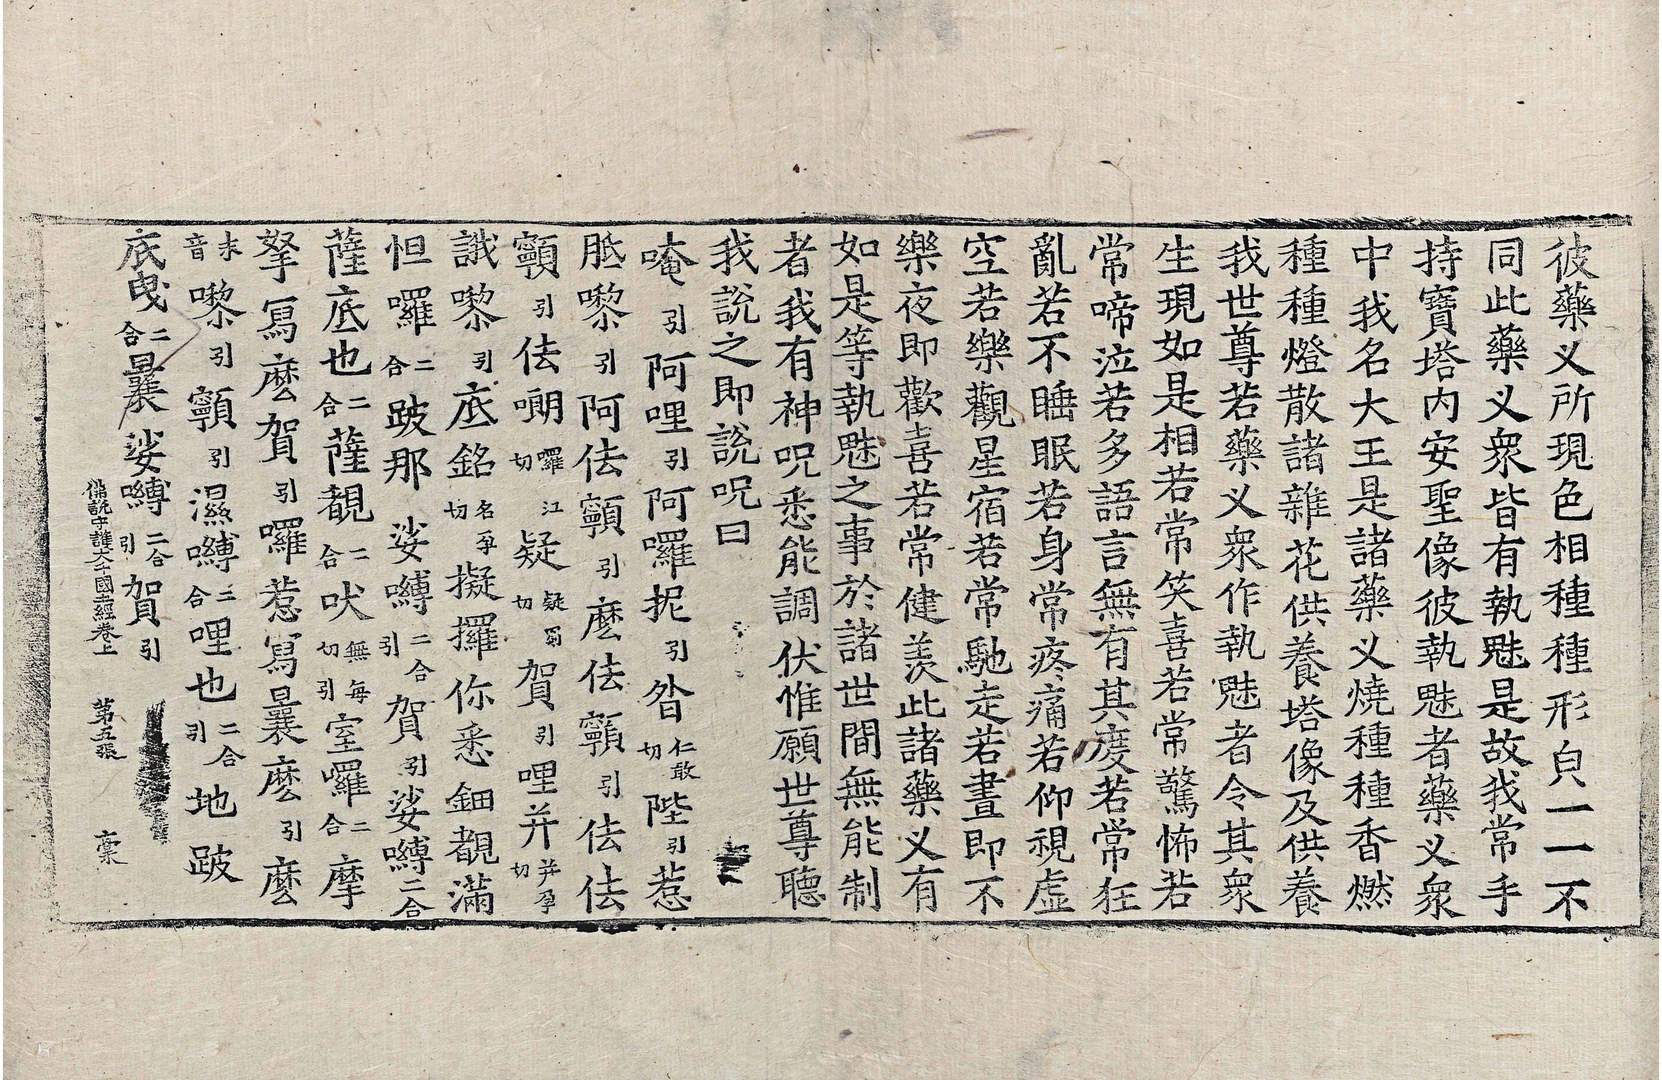 彼藥义所現色相種種形皃一一不
同此藥义衆皆有執魅是故我常手
持寶塔內安聖像彼執魅者藥义衆
中我名大王是諸藥义燒種種香燃
種種燈散諸雜花供養塔像及供養
我世尊若藥义衆作執魅者令其衆
生現如是相若常笑喜若常驚怖若
常啼泣若多語言無有其度若常狂
亂若不睡眠若身常疼痛若仰視虛
空若樂觀星宿若常馳走若晝即不
樂夜即歡喜若常健羨此諸藥义有
如是等執魅之事於諸世間無能制
者我有神呪悉能調伏惟願世尊聽
我說之即說呪曰
唵引阿哩引阿囉抳引昝仁敢切陛引惹
胝嚟引阿佉顐引麽佉顐引佉佉
顐引佉嘲囉江切疑疑蜀切賀引哩并并孕切
誐嚟引底銘名孕切擬攞你悉鈿覩滿
怛囉二合跛那娑嚩二合引賀引娑嚩二合
薩底也二合薩覩二合吠無每切引室囉二合摩
拏寫麽賀引囉惹寫曩麽引麽
末音嚟引顐引濕嚩二合哩也二合引地跛
底曳二合曩娑嚩二合引賀引
佛說守護大千國土經卷上 第五張 槀